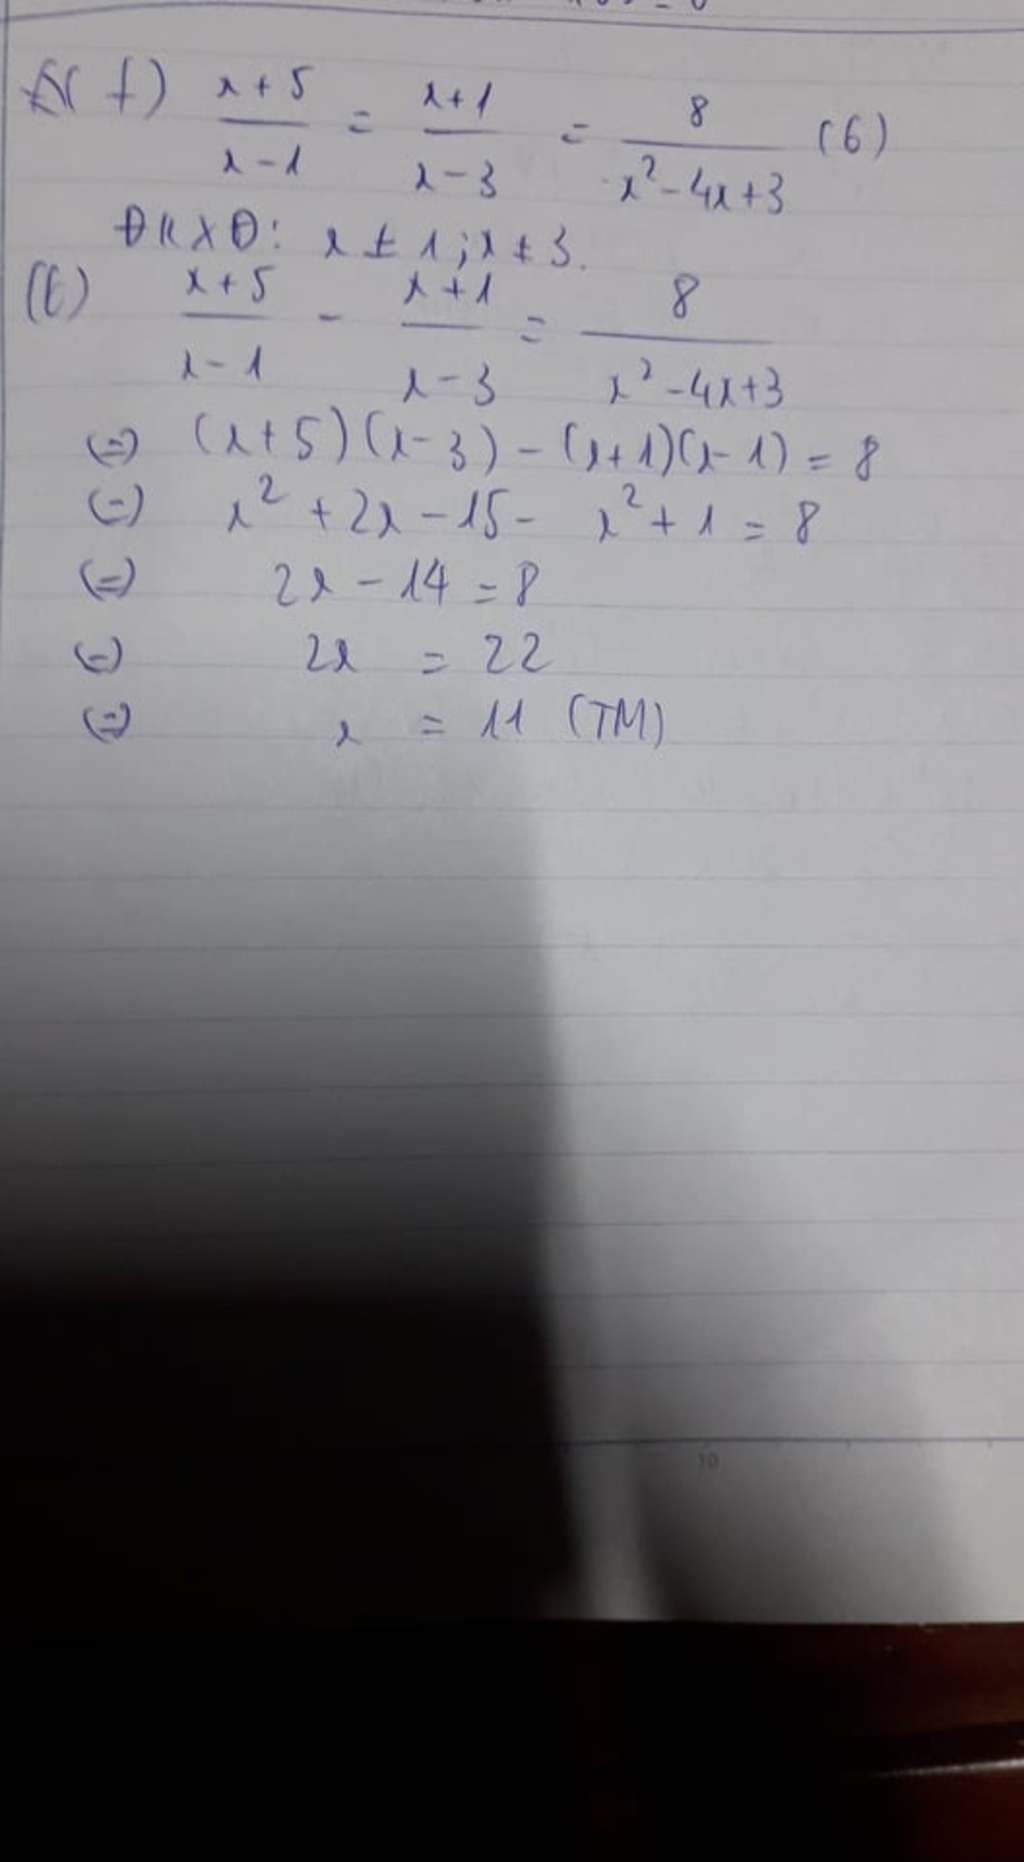 f) x+5/x-1 = x+1/x-3 = 8/x²-4x+3 (6)
ĐKXĐ: x ≠ 1; x ≠ 3.
(6) x+5/x-1 - x+1/x-3 = 8/x²-4x+3
(=) (x+5)(x-3) - (x+1)(x-1) = 8
(=) x² + 2x - 15 - x² + 1 = 8
(=) 2x - 14 = 8
(=) 2x = 22
(=) x = 11 (TM)
10